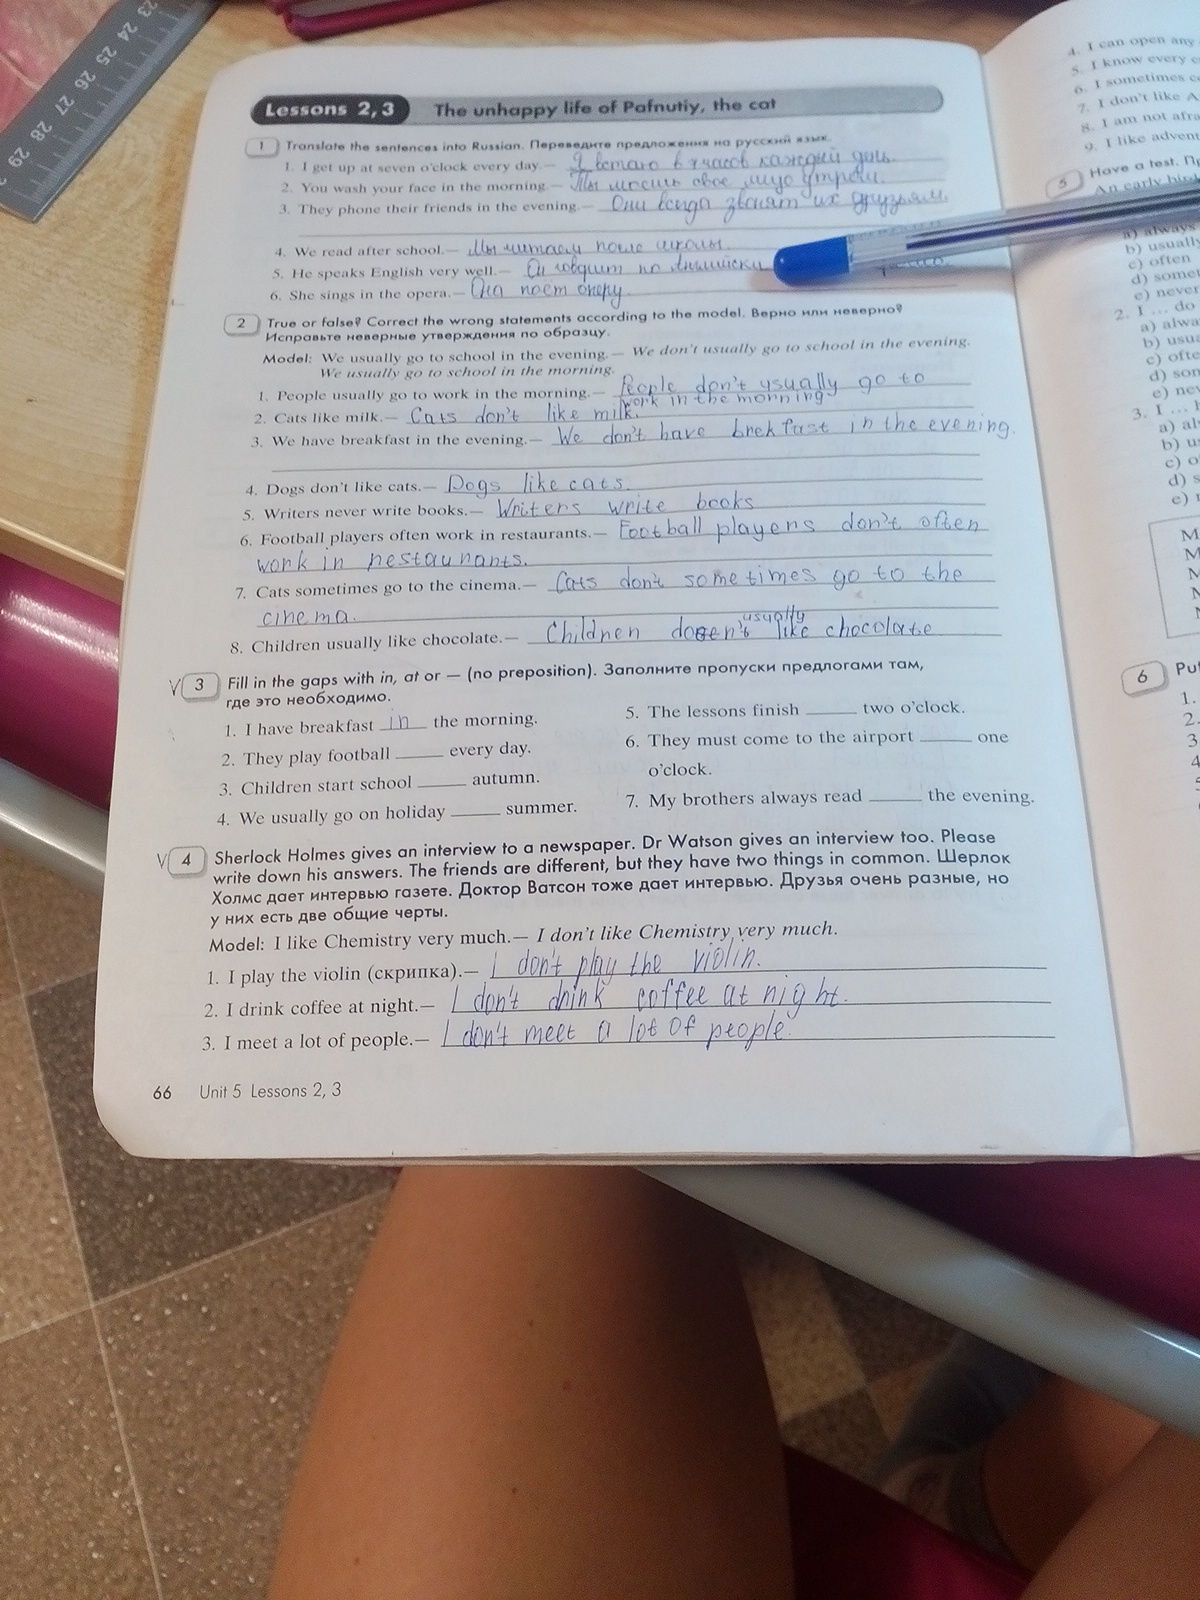 23 24 25 26 27 28 29
Lessons 2, 3 The unhappy life of Pafnutiy, the cat
1 Translate the sentences into Russian. Переведите предложения на русский язык.
1. I get up at seven o'clock every day.— Я встаю в 7 часов каждый день.
2. You wash your face in the morning.— Ты моешь свое лицо утром.
3. They phone their friends in the evening.— Они всегда звонят их друзьям.
4. We read after school.— Мы читаем после школы.
5. He speaks English very well.— Он говорит по Английски
6. She sings in the opera.— Она поет оперу.
2 True or false? Correct the wrong statements according to the model. Верно или неверно?
Исправьте неверные утверждения по образцу.
Model: We usually go to school in the evening.— We don't usually go to school in the evening.
We usually go to school in the morning.
1. People usually go to work in the morning.— People don't usually go to
work in the morning
2. Cats like milk.— Cats don't like milk.
3. We have breakfast in the evening.— We don't have brekfast in the evening.
4. Dogs don't like cats.— Dogs like cats.
5. Writers never write books.— Writers write books
6. Football players often work in restaurants.— Football players don't often
work in restaurants.
7. Cats sometimes go to the cinema.— Cats don't sometimes go to the
cinema.
usually
8. Children usually like chocolate.— Children doesn't like chocolate
V 3 Fill in the gaps with in, at or — (no preposition). Заполните пропуски предлогами там,
где это необходимо.
1. I have breakfast in the morning.
2. They play football _____ every day.
3. Children start school _____ autumn.
4. We usually go on holiday _____ summer.
5. The lessons finish _____ two o'clock.
6. They must come to the airport _____ one
o'clock.
7. My brothers always read _____ the evening.
V 4 Sherlock Holmes gives an interview to a newspaper. Dr Watson gives an interview too. Please
write down his answers. The friends are different, but they have two things in common. Шерлок
Холмс дает интервью газете. Доктор Ватсон тоже дает интервью. Друзья очень разные, но
у них есть две общие черты.
Model: I like Chemistry very much.— I don't like Chemistry very much.
1. I play the violin (скрипка).— I don't play the violin.
2. I drink coffee at night.— I don't drink coffee at night.
3. I meet a lot of people.— I don't meet a lot of people.
66 Unit 5 Lessons 2, 3
4. I can open any
5. I know every
6. I sometimes
7. I don't like A
8. I am not afra
9. I like adven
5 Have a test.
An early bird
a) always
b) usually
c) often
d) some
e) never
2. I ... do
a) alwa
b) usua
c) ofte
d) som
e) nev
3. I ...
a) al
b) u
c) o
d) s
e)
6 Put
1.
2.
3
4